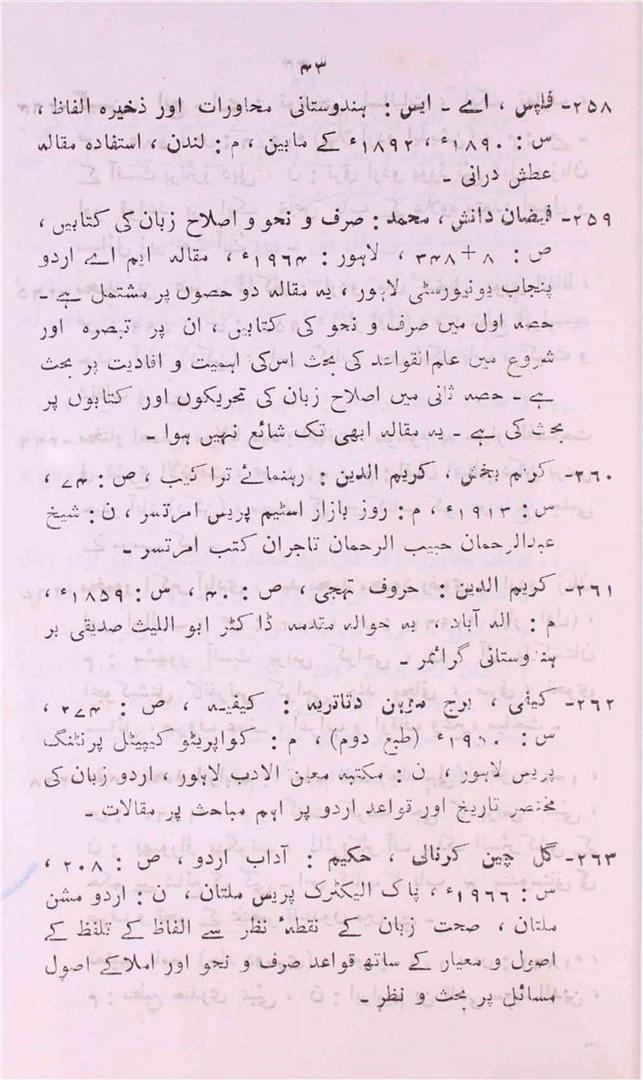 ۴۳
۲۵۸- فلپس ، اے - ایس : ہندوستانی محاورات اور ذخیرہ الفاظ ،
س : ۱۸۹۰ء ، ۱۸۹۲ء کے مابین ، م : لندن ، استفادہ مقالہ
عطش درانی -
۲۵۹- فیضان دانش ، محمد : صرف و نحو و اصلاح زبان کی کتابیں ،
ص : ۸ + ۳۴۸ ، لاہور : ۱۹۶۴ء ، مقالہ ایم اے اردو
پنجاب یونیورسٹی لاہور ، یہ مقالہ دو حصوں پر مشتمل ہے -
حصہ اول میں صرف و نحو کی کتابیں ، ان پر تبصرہ اور
شروع میں علم القواعد کی بحث اس کی اہمیت و افادیت پر بحث
ہے - حصہ ثانی میں اصلاح زبان کی تحریکوں اور کتابوں پر
بحث کی ہے - یہ مقالہ ابھی تک شائع نہیں ہوا -
۲۶۰- کریم بخش ، کریم الدین : رہنمائے تراکیب ، ص : ۷۴ ،
س : ۱۹۱۳ء ، م : روز بازار اسٹیم پریس امرتسر ، ن : شیخ
عبدالرحمان حبیب الرحمان تاجران کتب امرتسر -
۲۶۱- کریم الدین : حروف تہجی ، ص : ۴۰ ، س : ۱۸۵۹ء ،
م : الہ آباد ، بہ حوالہ مقدمہ ڈاکٹر ابو اللیث صدیقی بر
ہندوستانی گرائمر -
۲۶۲- کیفی ، برج موہن دتاتریہ : کیفیہ ، ص : ۲۷۴ ،
س : ۱۹۵۰ء (طبع دوم) ، م : کواپریٹو کیپیٹل پرنٹنگ
پریس لاہور ، ن : مکتبہ معین الادب لاہور ، اردو زبان کی
مختصر تاریخ اور قواعد اردو پر اہم مباحث پر مقالات -
۲۶۳- گل چین کرنالی ، حکیم : آداب اردو ، ص : ۲۰۸ ،
س : ۱۹۶۶ء ، پاک الیکٹرک پریس ملتان ، ن : اردو مشن
ملتان ، صحت زبان کے نقطۂ نظر سے الفاظ کے تلفظ کے
اصول و معیار کے ساتھ قواعد صرف و نحو اور املا کے اصول
مسائل پر بحث و نظر -